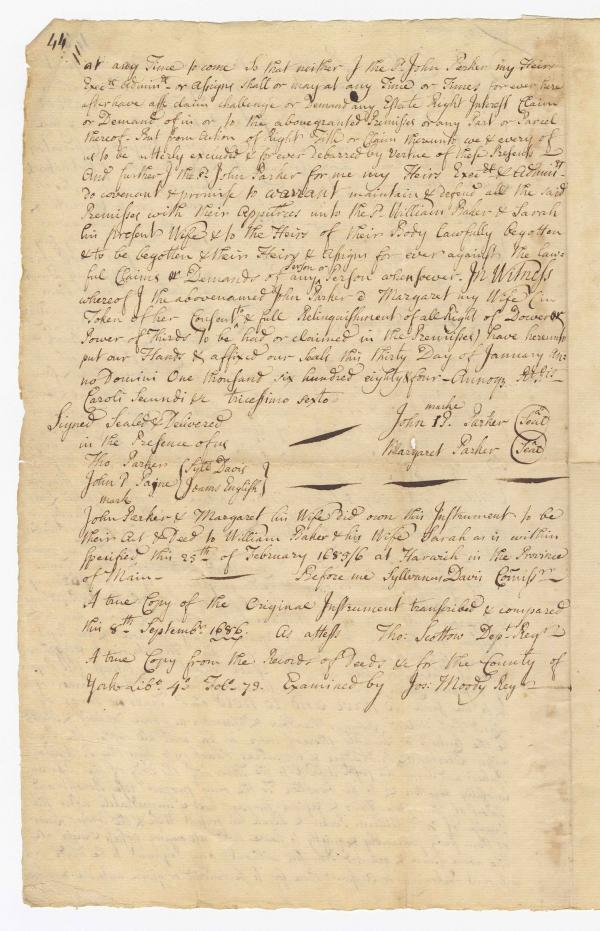 44
at any Time to come So that neither I the sd. John Parker my Heirs
Execrs. Adminrs. or Assigns shall or may at any Time or Times for ever here
after have ask claim challenge or Demand any Estate Right Interest Claim
or Demand of in or to the abovegranted Premisses or any Part or Parcel
thereof. But from Action of Right Title or Claim thereunto we & every of
us to be utterly excluded & for ever debarred by Vertue of these Presents
And further I the sd. John Parker for me my Heirs Execrs. & Adminrs.
Do covenant & promise to warrant maintain & defend all the said
Premisses with their Appurces unto the sd. William Baker & Sarah
his present Wife & to the Heirs of their Body lawfully begotten
& to be begotten & their Heirs & Assigns for ever against the law-
ful Claims or Demands of any Person or Person whensoever. In Witness
whereof I the abovenamed John Parker & Margaret my Wife (in
Token of her Consent & full Relinquishment of all Right of Dower &
Power of Thirds to be had or claimed in the Premisses) have hereunto
put our Hands & affixed our Seals this thirty Day of January An-
no Domini One thousand six hundred eighty & four - Annoqe R Rs
Caroli Secundi &c tricessimo sexto
Signed Sealed & Delivered
in the Presence of us
Tho. Parker
John P Paine
mark
Sylv Davis
Joams English
marke
John IP. Parker (Seal)
Margaret Parker (Seal)
John Parker & Margaret his Wife did own this Instrument to be
their Act & Deed to William Baker & his Wife Sarah as is within
specified this 25th. of February 1685/6 at Harwich in the Province
of Main - Before me Syllvanus Davis Comissr.
A true Copy of the Original Instrument transcribed & compared
this 8th. Septembr. 1686. As attests Tho: Scottow Dept. Regr.
A true Copy from the Records of Deeds &c for the County of
York Libo. 4o Folo. 73. Examined by Jos: Moody Regr